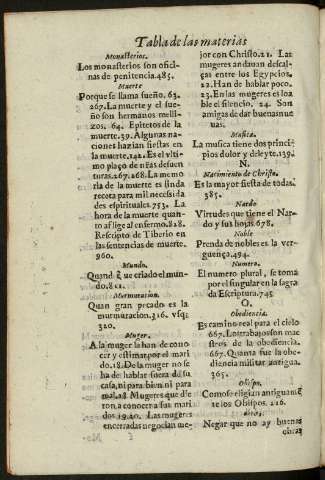 Tabla de las materias
Monasterios.
Los monasterios son ofici-
nas de penitencia.485.
Muerte
Porque se llama sueño. 63.
267.La muerte y el sue-
ño son hermanos melli-
zos. 64. Epitetos de la
muerte.39. Algunas na-
ciones hazian fiestas en
la muerte.142. Es el vlti-
mo plaço de nr̃as desuen
turas.267.268.La memo
ria de la muerte es linda
receta para mil necesida
des espirituales.753. La
hora de la muerte quan-
to aflige al enfermo.828.
Rescripto de Tiberio en
las sentencias de muerte.
960.
Mundo.
Quand q̃ ue criado el mun-
do.821.
Murmuracion.
Quan gran pecado es la
murmuracion.316. vsq;
320.
Muger.
A la muger la han de cono-
cer y estimar por el mari
do.18.De la muger no se
ha de hablar fuera de su
casa, ni para bien ni para
mal.28 Mugeres que die
ron a conocer a sus mari
dos 19.20. Las mugeres
encerradas negocian me-
jor con Christo.21. Las
mugeres andauan descal-
ças entre los Egypcios.
22. Han de hablar poco.
23. En las mugeres es loa
ble el silencio. 24. Son
amigas de dar buenas nue
uas.
Musica.
La musica tiene dos princi-
pios dolor y deleyte.139.
N.
Nacimiento de Christo.
Es la mayor fiesta de todas.
385.
Nardo
Virtudes que tiene el Nar-
do y sus hojas.678.
Noble
Prenda de nobles es la ver-
guença.494.
Numero.
El numero plural, se toma
por el singular en la sagra
da Escriptura.745
O.
Obediencia.
Es camino real para el cielo
667. Los trabajos son mae
stros de la obediencia.
667. Quanta fue la obe-
diencia militar antigua.
365.
Obispo.
Como se eligian antiguamẽ
te los Obispos. 216.
Negar que no ay buenas
obras